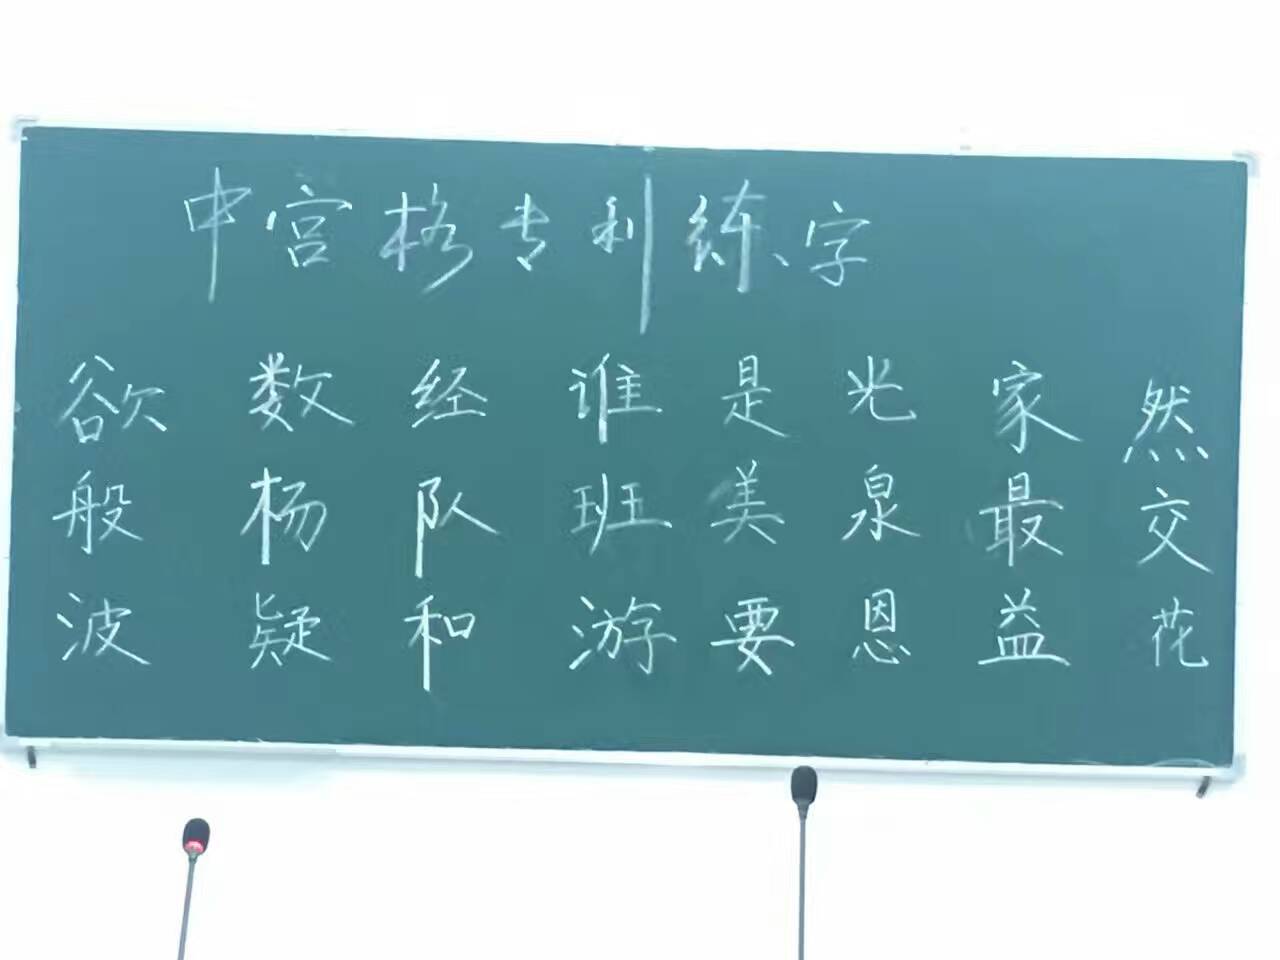 中宫格专利练字
欲数经谁是光家然
般杨队班美泉最交
波疑和游要恩益花